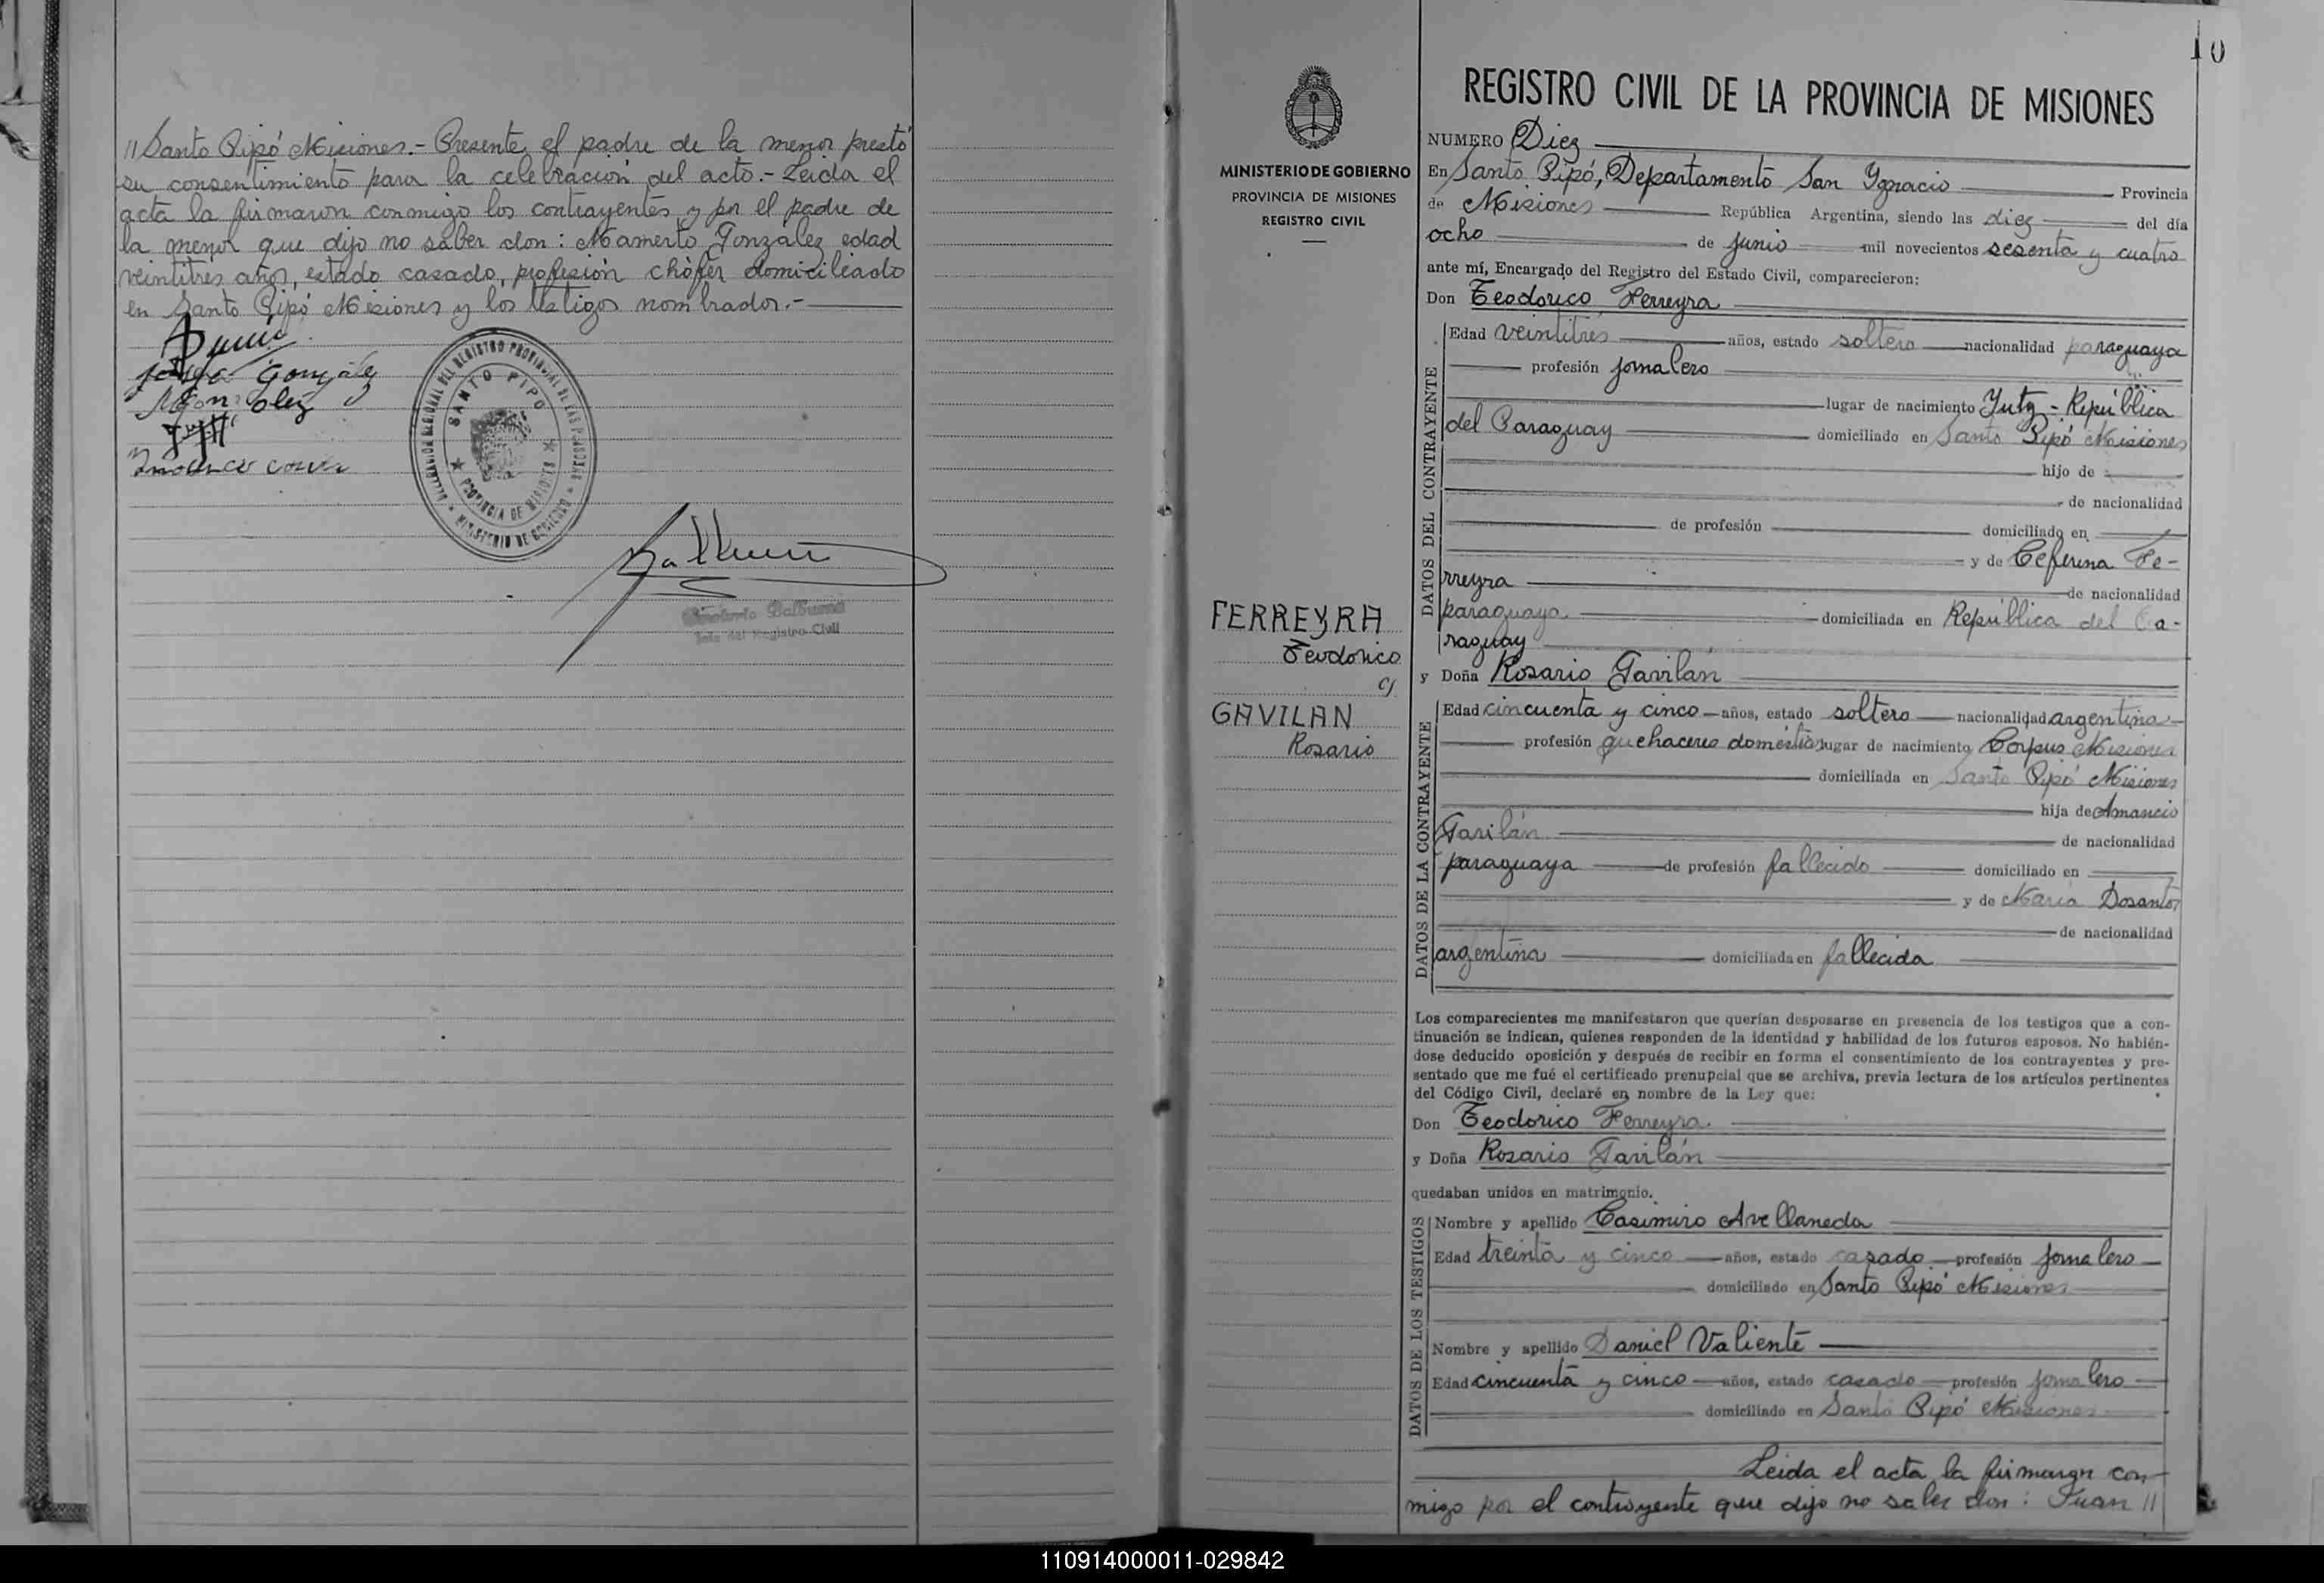 // Santo Pipó Misiones.- Presente el padre de la menor prestó
su consentimiento para la celebración del acto.- Leida el
acta la firmaron conmigo los contrayentes y por el padre de
la menor que dijo no saber don: Mamerto González edad
veintitres años, estado casado, profesión chófer domiciliado
en Santo Pipó Misiones y los testigos nombrados.-
González
SANTO PIPO
PROVINCIA DE MISIONES
MINISTERIO DE GOBIERNO
Balbuena
Jefe del Registro Civil
10
MINISTERIO DE GOBIERNO
PROVINCIA DE MISIONES
REGISTRO CIVIL
FERREYRA
Teodorico
c/
GAVILAN
Rosario
REGISTRO CIVIL DE LA PROVINCIA DE MISIONES
NUMERO Diez
En Santo Pipó, Departamento San Ygnacio Provincia
de Misiones República Argentina, siendo las diez del día
ocho de junio mil novecientos sesenta y cuatro
ante mí, Encargado del Registro del Estado Civil, comparecieron:
Don Teodorico Ferreyra
DATOS DEL CONTRAYENTE
Edad veintitrés años, estado soltero nacionalidad paraguaya
profesión jornalero
lugar de nacimiento Yuty - República
del Paraguay domiciliado en Santo Pipó Misiones
hijo de
de nacionalidad
de profesión domiciliado en
y de Ceferina Fe-
rreyra de nacionalidad
paraguaya domiciliada en República del Pa-
raguay
y Doña Rosario Gavilán
DATOS DE LA CONTRAYENTE
Edad cincuenta y cinco años, estado soltero nacionalidad argentina
profesión quehaceres domésticos lugar de nacimiento Corpus Misiones
domiciliada en Santo Pipó Misiones
hija de Amancio
Gavilán de nacionalidad
paraguaya de profesión fallecido domiciliado en
y de María Dosantos
de nacionalidad
argentina domiciliada en fallecida
Los comparecientes me manifestaron que querían desposarse en presencia de los testigos que a con-
tinuación se indican, quienes responden de la identidad y habilidad de los futuros esposos. No habién-
dose deducido oposición y después de recibir en forma el consentimiento de los contrayentes y pre-
sentado que me fué el certificado prenupcial que se archiva, previa lectura de los artículos pertinentes
del Código Civil, declaré en nombre de la Ley que:
Don Teodorico Ferreyra.
y Doña Rosario Gavilán
quedaban unidos en matrimonio.
DATOS DE LOS TESTIGOS
Nombre y apellido Casimiro Avellaneda
Edad treinta y cinco años, estado casado profesión jornalero
domiciliado en Santo Pipó Misiones
Nombre y apellido Daniel Valiente
Edad cincuenta y cinco años, estado casado profesión jornalero
domiciliado en Santo Pipó Misiones
Leida el acta la firmaron con-
migo por el contrayente que dijo no saber don: Juan //
110914000011-029842